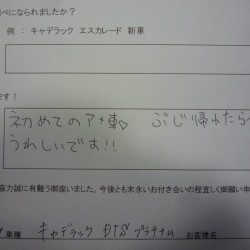 べになられましたか？
例 ： キャデラック エスカレード 新車
ます！
初めてのアメ車♡ ぶじ帰れたら
うれしいです!!
協力誠に有難う御座いました。今後とも末永いお付き合いの程宜しく御願い申
車種 キャデラック DTS プラチナム お客様名